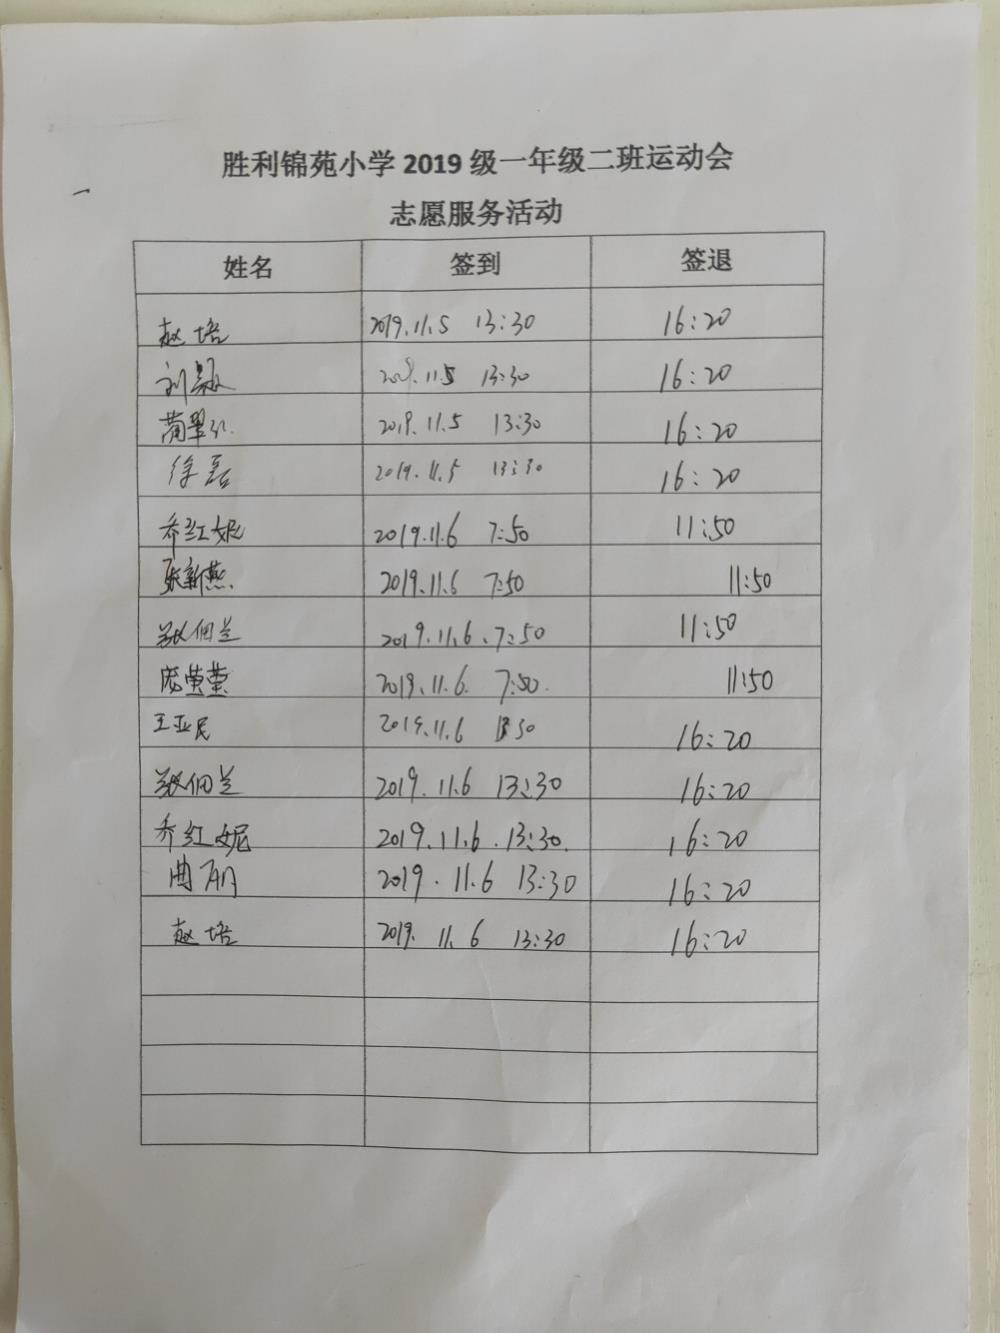 胜利锦苑小学2019级一年级二班运动会
志愿服务活动
姓名 签到 签退
赵培 2019.11.5 13:30 16:20
刘颖 2019.11.5 13:30 16:20
2019.11.5 13:30 16:20
徐磊 2019.11.5 13:30 16:20
乔红妮 2019.11.6 7:50 11:50
张新燕 2019.11.6 7:50 11:50
佃兰 2019.11.6.7:50 11:50
庞萤萤 2019.11.6. 7:50. 11:50
王亚民 2019.11.6 13:30 16:20
佃兰 2019.11.6 13:30 16:20
乔红妮 2019.11.6.13:30. 16:20
曲丽 2019.11.6 13:30 16:20
赵培 2019.11.6 13:30 16:20